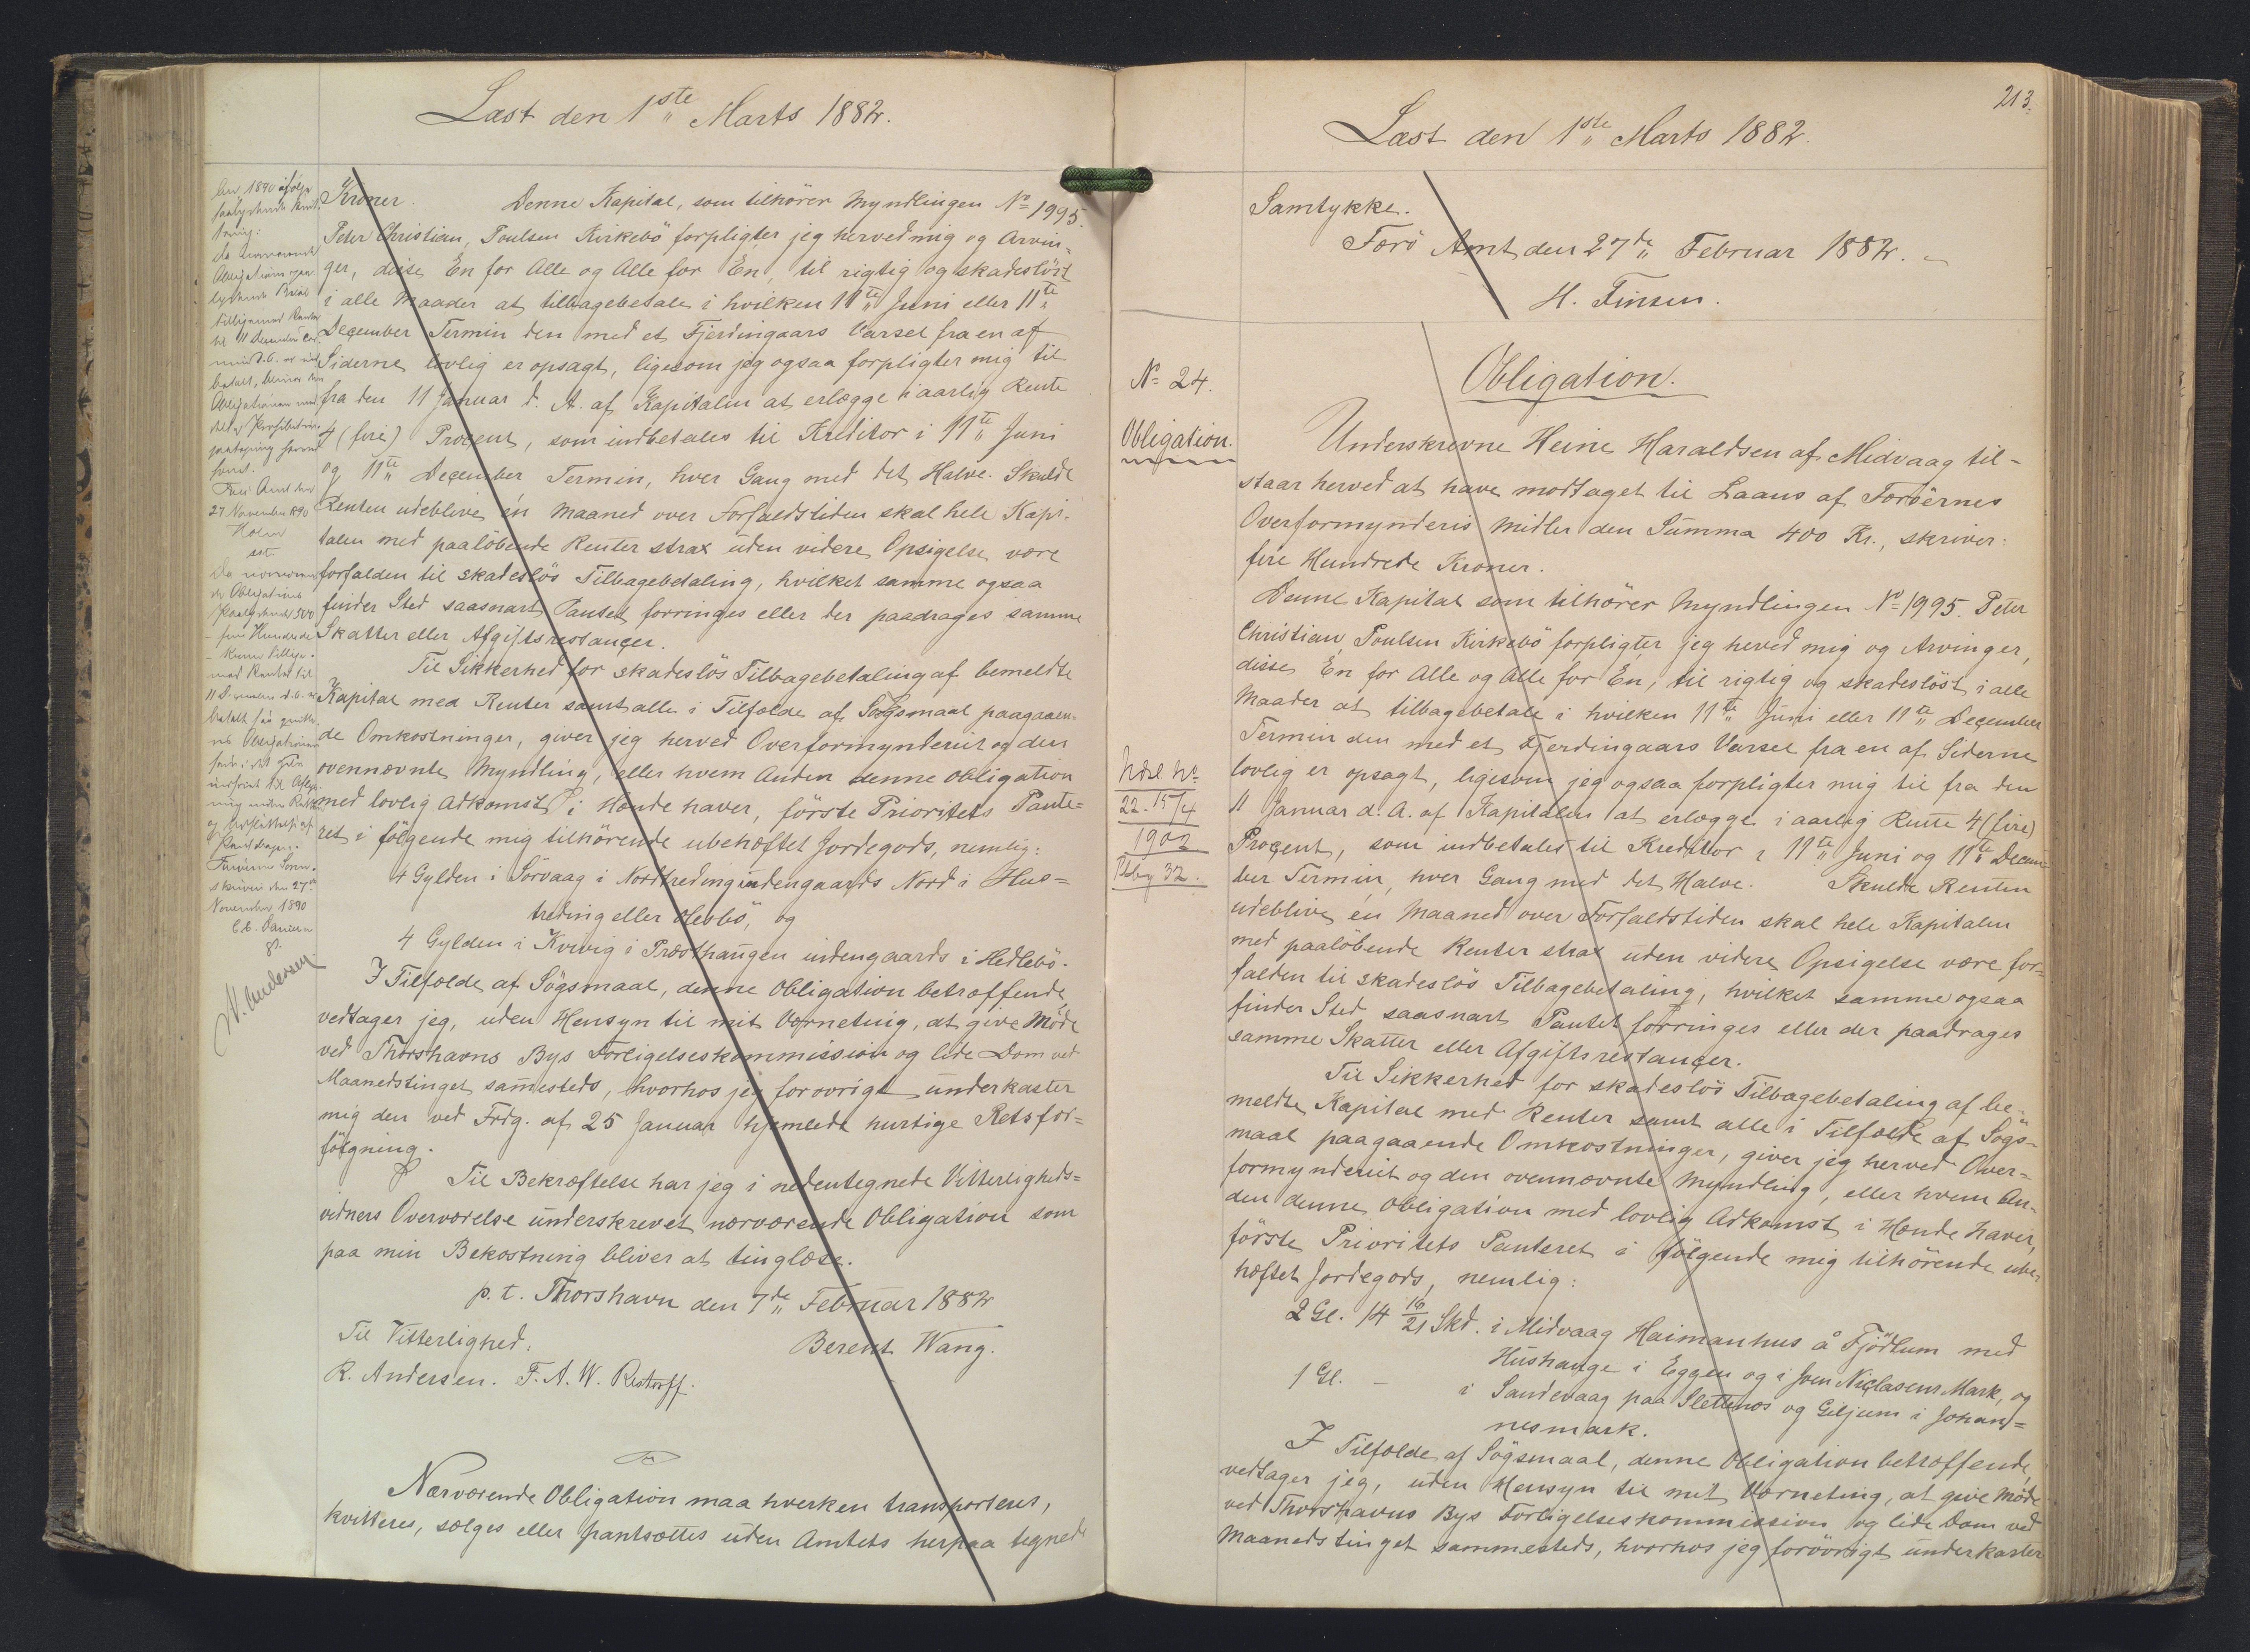 Læst den 1ste Marts 1882.
Kroner. Denne Kapital, som tilhører Myndlingen No 1995.
Peter Christian Poulsen Kirkebö forpligter jeg herved mig og Arvin-
ger, disse En for Alle og Alle for En, til rigtig og skadesløst
i alle Maader at tilbagebetale i hvilken 11te Juni eller 11te
December Termin den med et Fjerdingaars Varsel fra en af
Siderne lovlig er opsagt, ligesom jeg ogsaa forpligter mig til
fra den 11 Januar d. A. af Kapitalen at erlægge i aarlig Rente
4 (fire) Procent, som indbetales til Kreditor i 11te Juni
og 11te December Termin, hver Gang med det Halve. Skulde
Renten udeblive én Maaned over Forfaldstiden skal hele Kapi-
talen med paaløbende Renter strax uden videre Opsigelse være
forfalden til skadesløs Tilbagebetaling, hvilket samme ogsaa
finder Sted saasnart Pantet forringes eller der paadrages samme
Skatter eller Afgiftsrestancer.
Til Sikkerhed for skadesløs Tilbagebetaling af bemeldte
Kapital med Renter samt alle i Tilfælde af Søgsmaal paagaaen-
de Omkostninger, giver jeg herved Overformynderiet og den
ovennævnte Myndling, eller hvem Anden denne Obligation
med lovlig Adkomst i Hænde haver, første Prioritets Pante-
ret i følgende mig tilhørende ubehæftet Jordegods, nemlig:
4 Gylden i Sörvaag i Nordtreding indengaards Nord i Hus-
treding eller Hebbö, og
4 Gylden i Kvivig i Præsthaugen indengaards i Hedlebö.
I Tilfælde af Søgsmaal, denne Obligation betræffende,
vedtager jeg, uden Hensyn til mit Værneting, at give Møde
ved Thorshavns Bys Forligelseskommission og lide Dom ved
Maanedstinget sammesteds, hvorhos jeg forøvrigt underkaster
mig den ved Frdg. af 25 Januar hjemlede hurtige Retsfor-
følgning.
Til Bekræftelse har jeg i nedentegnede Vitterligheds-
vidners Overværelse underskrevet nærværende Obligation som
paa min Bekostning bliver at tinglæse.
p. t. Thorshavn den 7de Februar 1882
Til Vitterlighed: Berent Wang.
R. Andersen. F. A. W. Restorff.
Nærværende Obligation maa hverken transporteres,
kvitteres, sælges eller pantsættes uden Amtets herpaa tegnede
27 November 1890
Holm
November 1890
N. Andersen
213.
Læst den 1ste Marts 1882.
Samtykke.
Færö Amt den 27de Februar 1882.
H. Finsen.
No 24.
Obligation.
Obligation.
Underskrevne Heine Haraldsen af Midvaag til-
staar herved at have modtaget til Laans af Færöernes
Overformynderis Midler den Summa 400 Kr., skriver:
fire Hundrede Kroner.
Denne Kapital som tilhører Myndlingen No 1995. Peter
Christian Poulsen Kirkebö forpligter jeg heved mig og Arvinger,
disse En for Alle og Alle for En, til rigtig og skadesløst i alle
Maader at tilbagebetale i hvilken 11te Juni eller 11te December
Termin den med et Fjerdingaars Varsel fra en af Siderne
lovlig er opsagt, ligesom jeg ogsaa forpligter mig til fra den
11 Januar d. A. af Kapitalen at erlægge i aarlig Rente 4 (fire)
Procent, som indbetales til Kreditor i 11te Juni og 11te Decem-
ber Termin, hver Gang med det Halve. Skulde Renten
udeblive én Maaned over Forfaldstiden skal hele Kapitalen
med paaløbende Renter strax uden videre Opsigelse være for-
falden til skadesløs Tilbagebetaling, hvilket samme ogsaa
finder Sted saasnart Pantet forringes eller der paadrages
samme Skatter eller Afgiftsrestancer.
22. 15/4
1902
32.
Til Sikkerhed for skadesløs Tilbagebetaling af be-
meldte Kapital med Renter samt alle i Tilfælde af Søgs-
maal paagaaende Omkostninger, giver jeg herved Over-
formynderiet og den ovennævnte Myndling, eller hvem An-
den denne Obligation med lovlig Adkomst i Hænde haver,
første Prioritets Panteret i følgende mig tilhørende ube-
hæftet Jordegods, nemlig:
2 Gl. 14 16/21 Skd. i Midvaag Haimanhus å Fjödlum med
Hushauge i Eggen og i Joen Niclasens Mark, og
1 Gl. – i Sandevaag paa Slettenös og Giljum i Johan-
nesmark.
I Tilfælde af Søgsmaal, denne Obligation betræffende,
vedtager jeg, uden Hensyn til mit Værneting, at give Møde
ved Thorshavns Bys Forligelseskommission og lide Dom ved
Maanedstinget sammesteds, hvorhos jeg forøvrigt underkaster